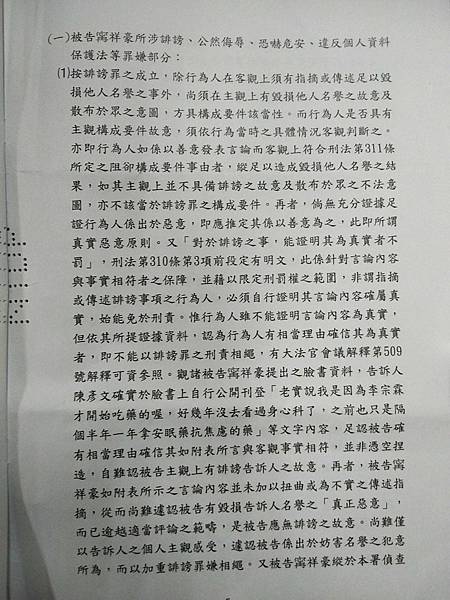 (一)被告寗祥豪所涉誹謗、公然侮辱、恐嚇危安、違反個人資料
保護法等罪嫌部分：
(1)按誹謗罪之成立，除行為人在客觀上須有指摘或傳述足以毀
損他人名譽之事外，尚須在主觀上有毀損他人名譽之故意及
散布於眾之意圖，方具構成要件該當性。而行為人是否具有
主觀構成要件故意，須依行為當時之具體情況客觀判斷之。
亦即行為人如係以善意發表言論而客觀上符合刑法第311條
所定之阻卻構成要件事由者，縱足以造成毀損他人名譽之結
果，如其主觀上並不具備誹謗之故意及散布於眾之不法意
圖，亦不該當於誹謗罪之構成要件。再者，倘無充分證據足
證行為人係出於惡意，即應推定其係以善意為之，此即所謂
真實惡意原則。又「對於誹謗之事，能證明其為真實者不
罰」，刑法第310條第3項前段定有明文，此係針對言論內容
與事實相符者之保障，並藉以限定刑罰權之範圍，非謂指摘
或傳述誹謗事項之行為人，必須自行證明其言論內容確屬真
實，始能免於刑責。惟行為人雖不能證明言論內容為真實，
但依其所提證據資料，認為行為人有相當理由確信其為真實
者，即不能以誹謗罪之刑責相繩，有大法官會議解釋第509
號解釋可資參照。觀諸被告寗祥豪提出之臉書資料，告訴人
陳彥文確實於臉書上自行公開刊登「老實說我是因為李宗霖
才開始吃藥的喔，好幾年沒去看過身心科了，之前也只是隔
個半年一年拿安眠藥抗焦慮的藥」等文字內容，足認被告確
有相當理由確信其如附表所言與客觀事實相符，並非憑空捏
造，自難認被告主觀上有誹謗告訴人之故意。再者，被告寗
祥豪如附表所示之言論內容並未加以扭曲或為不實之傳述指
摘，從而尚難遽認被告有毀損告訴人名譽之「真正惡意」，
而已逾越適當評論之範疇，是被告應無誹謗之故意。尚難僅
以告訴人之個人主觀感受，遽認被告係出於妨害名譽之犯意
所為，而以加重誹謗罪嫌相繩。又被告寗祥豪縱於本署偵查